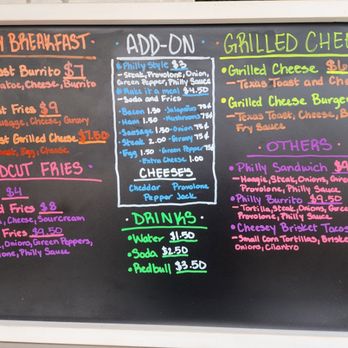 BREAKFAST
Burrito $7
Cheese, Burrito
Fries $9
Sausage, Cheese, Gravy
Grilled Cheese $7.50
Egg, Cheese
CUT FRIES
$4
Fries $8
Cheese, Sour Cream
Fries $9.50
Onions, Green Peppers,
Philly Sauce
ADD-ON
• Philly Style $3
- Steak, Provolone, Onion,
Green Pepper, Philly Sauce
• Make it a meal $4.50
- Soda and Fries
• Bacon 1.50 • Jalapeños 75¢
• Ham 1.50 • Mushrooms 75¢
• Sausage 1.50 • Onion 75¢
• Steak 2.00 • Gravy 75¢
• Egg 1.50 • Green Pepper 75¢
• Extra Cheese 1.00
CHEESES
Cheddar Provolone
Pepper Jack
• DRINKS •
• Water $1.50
• Soda $2.50
• Redbull $3.50
GRILLED CHEE
• Grilled Cheese $6
- Texas Toast and Che
• Grilled Cheese Burger
- Texas Toast, Cheese, B
Fry Sauce
• OTHERS •
• Philly Sandwich $9
- Hoagie, Steak, Onions, Gre
Provolone, Philly Sauce
• Philly Burrito $9.50
- Tortilla, Steak, Onions, Gr
Provolone, Philly Sauce
• Cheesey Brisket Tacos
- Small Corn Tortillas, Brisk
Onions, Cilantro